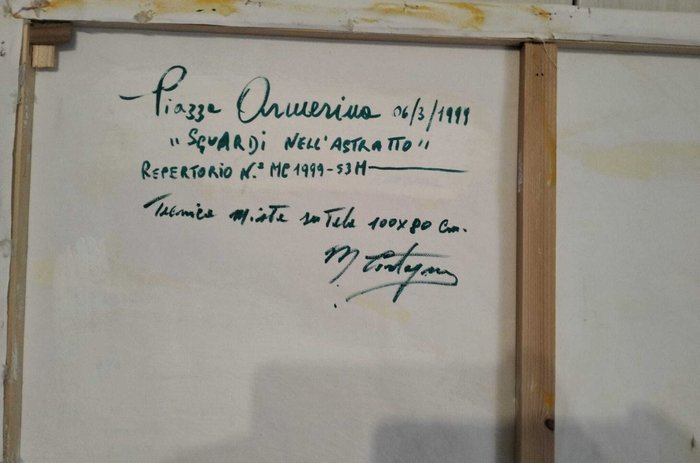 Piazza Armerina 06/3/1999
"SGUARDI NELL'ASTRATTO"
REPERTORIO N.° MC1999-53M
Tecnica Mista su Tela 100x80 cm.
M